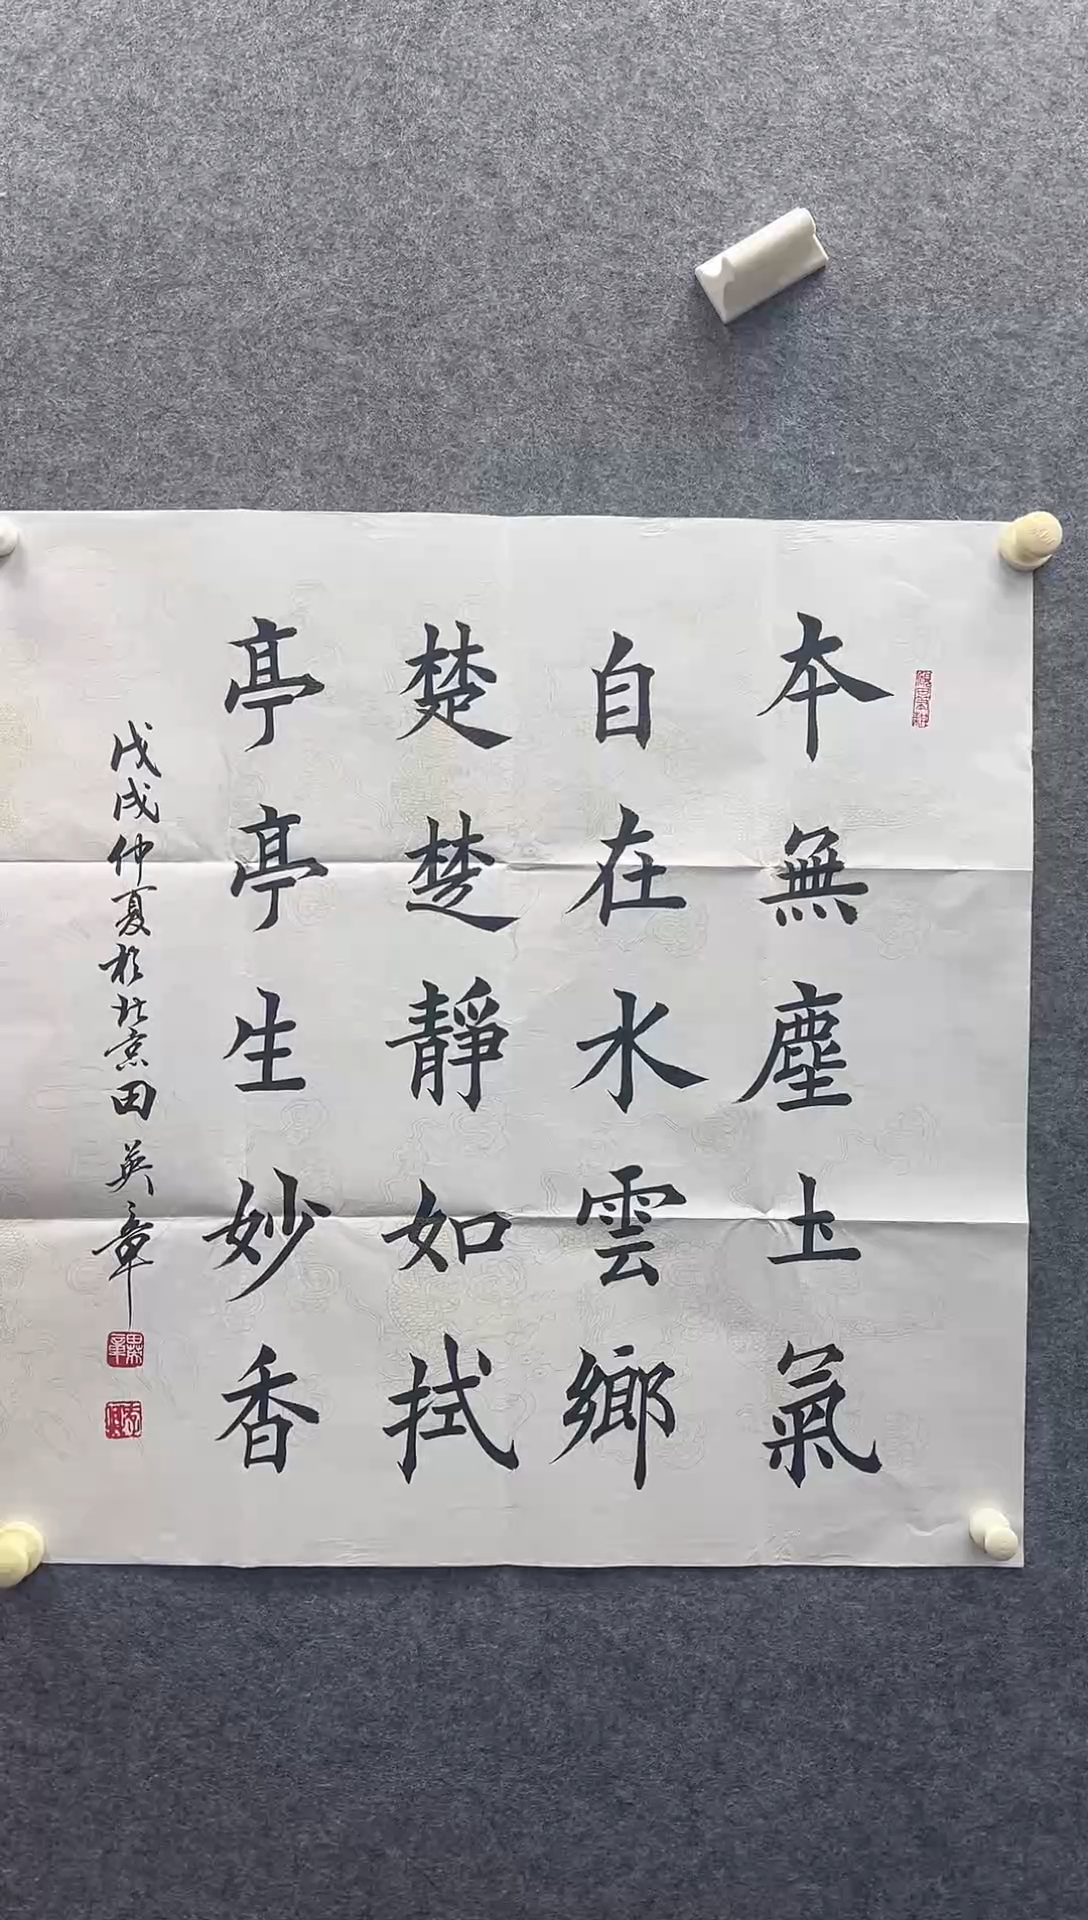 本無塵土氣
自在水雲鄉
楚楚靜如拭
亭亭生妙香
戊戌仲夏於北京田英章